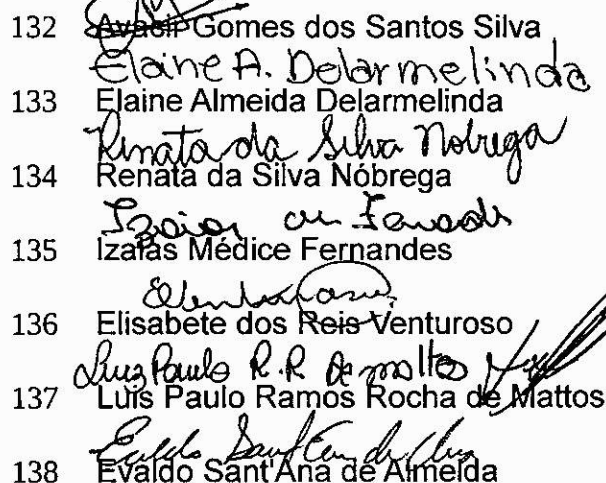 132 Avacir Gomes dos Santos Silva
Elaine A. Delarmelinda
133 Elaine Almeida Delarmelinda
Renata da Silva Nobrega
134 Renata da Silva Nóbrega
135 Izaías Médice Fernandes
136 Elisabete dos Reis Venturoso
Luis Paulo R. R. de Mattos
137 Luís Paulo Ramos Rocha de Mattos
138 Evaldo Sant'Ana de Almeida